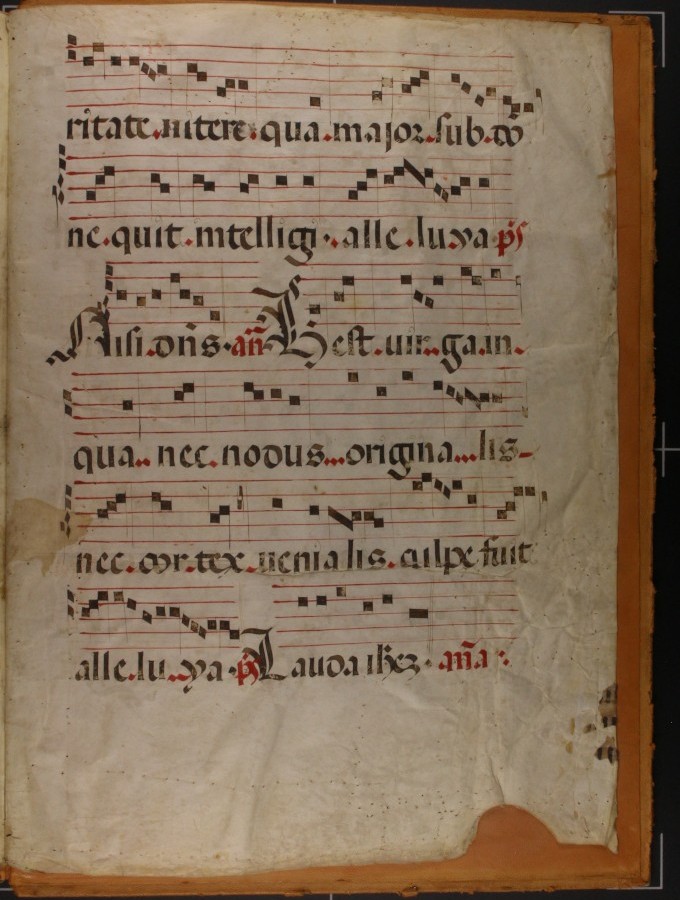 ritate.nitere.qua.major.sub.co
ne.quit.intelligi.alle.luya ps
Nisi.dns.añ Hest.uir..ga.in.
qua..nec.nodus...origina...lis-
nec.cor.tex.uenialis.culpe fuit
alle.lu..ya.ps Lauda ihez.aña: